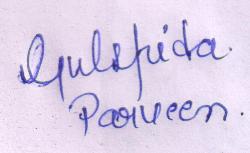 Gulafrida.
Parveen.